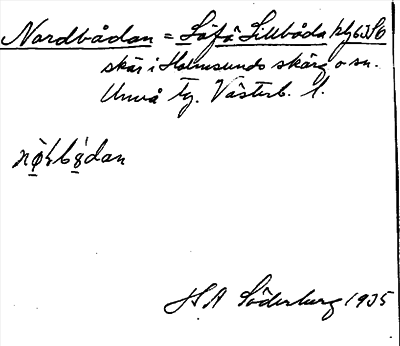 Nordbådan = Löfö Lillbåda kbl 63 Sö
skär i Holmsunds skärg o sn.
Umeå tg. Västerb. l.
nǫ̀ɫbǫ̀dan
H A Söderberg 1935